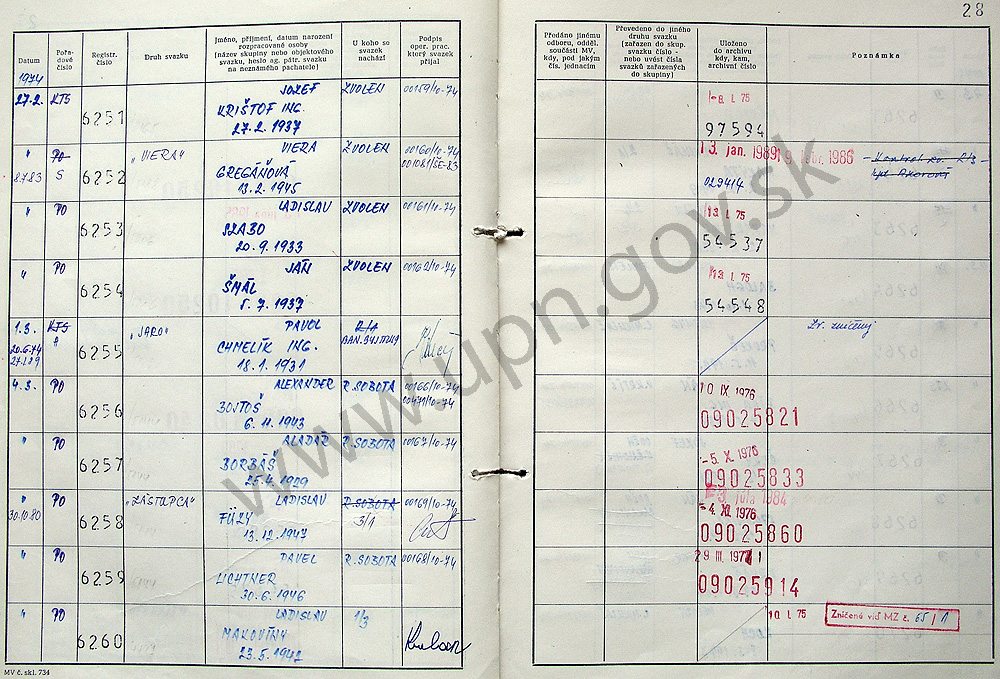 28
Datum
Pořadové číslo
Registr. číslo
Druh svazku
Jméno, příjmení, datum narození
rozpracované osoby
(název skupiny nebo objektového
svazku, heslo ag. pátr. svazku
na neznámého pachatele)
U koho se
svazek
nachází
Podpis
oper. prac.
který svazek
přijal
Předáno jinému
odboru, odděl.
součásti MV,
kdy, pod jakým
čís. jednacím
Převedeno do jiného
druhu svazku
(zařazen do skup.
svazku číslo -
nebo uvést čísla
svazků zařazených
do skupiny)
Uloženo
do archivu
kdy, kam,
archivní číslo
Poznámka
1974
27.2. KTS 6251 JOZEF ZVOLEN 00159/10-74 -8. I. 75
KRIŠTOF ING.
27.2.1937 97594
" PO 6252 „VIERA" VIERA ZVOLEN 00160/10-74 13. jan. 1989 1986
8.7.83 S GREGÁŇOVÁ 001081/SE-83
13.2.1945 029414
" PO 6253 LADISLAV ZVOLEN 00161/10-74 13. I. 75
SZABO
20.9.1933 54537
" PO 6254 JÁN ZVOLEN 00162/10-74 13. I. 75
ŠMÁL
5.7.1937 54548
1.3. KTS 6255 „JARO" PAVOL Zv. zničený
20.6.74 A CHMELÍK ING. BAN. BYSTRICA
18.1.1931
4.3. PO 6256 ALEXANDER R. SOBOTA 00166/10-74 10 IX. 1976
BOJTOŠ 00471/10-74
6.11.1943 09025821
" PO 6257 ALADÁR R. SOBOTA 00167/10-74 -5. X. 1976
BORBÁŠ
25.4.1929 09025833
" PO 6258 „ZÁSTUPCA" LADISLAV R. SOBOTA 00169/10-74 1984
30.10.80 FÜZY 3/1 -4. XI. 1976
13.12.1947 09025860
" PO 6259 PAVEL R. SOBOTA 00168/10-74 29 III. 1977
LICHTNER
30.6.1946 09025914
" PO 6260 LADISLAV 1/3 10. I. 75 Zničené viď MZ č. 65/1
MAKOVÍNY
23.5.1942
MV č. skl. 734
www.upn.gov.sk